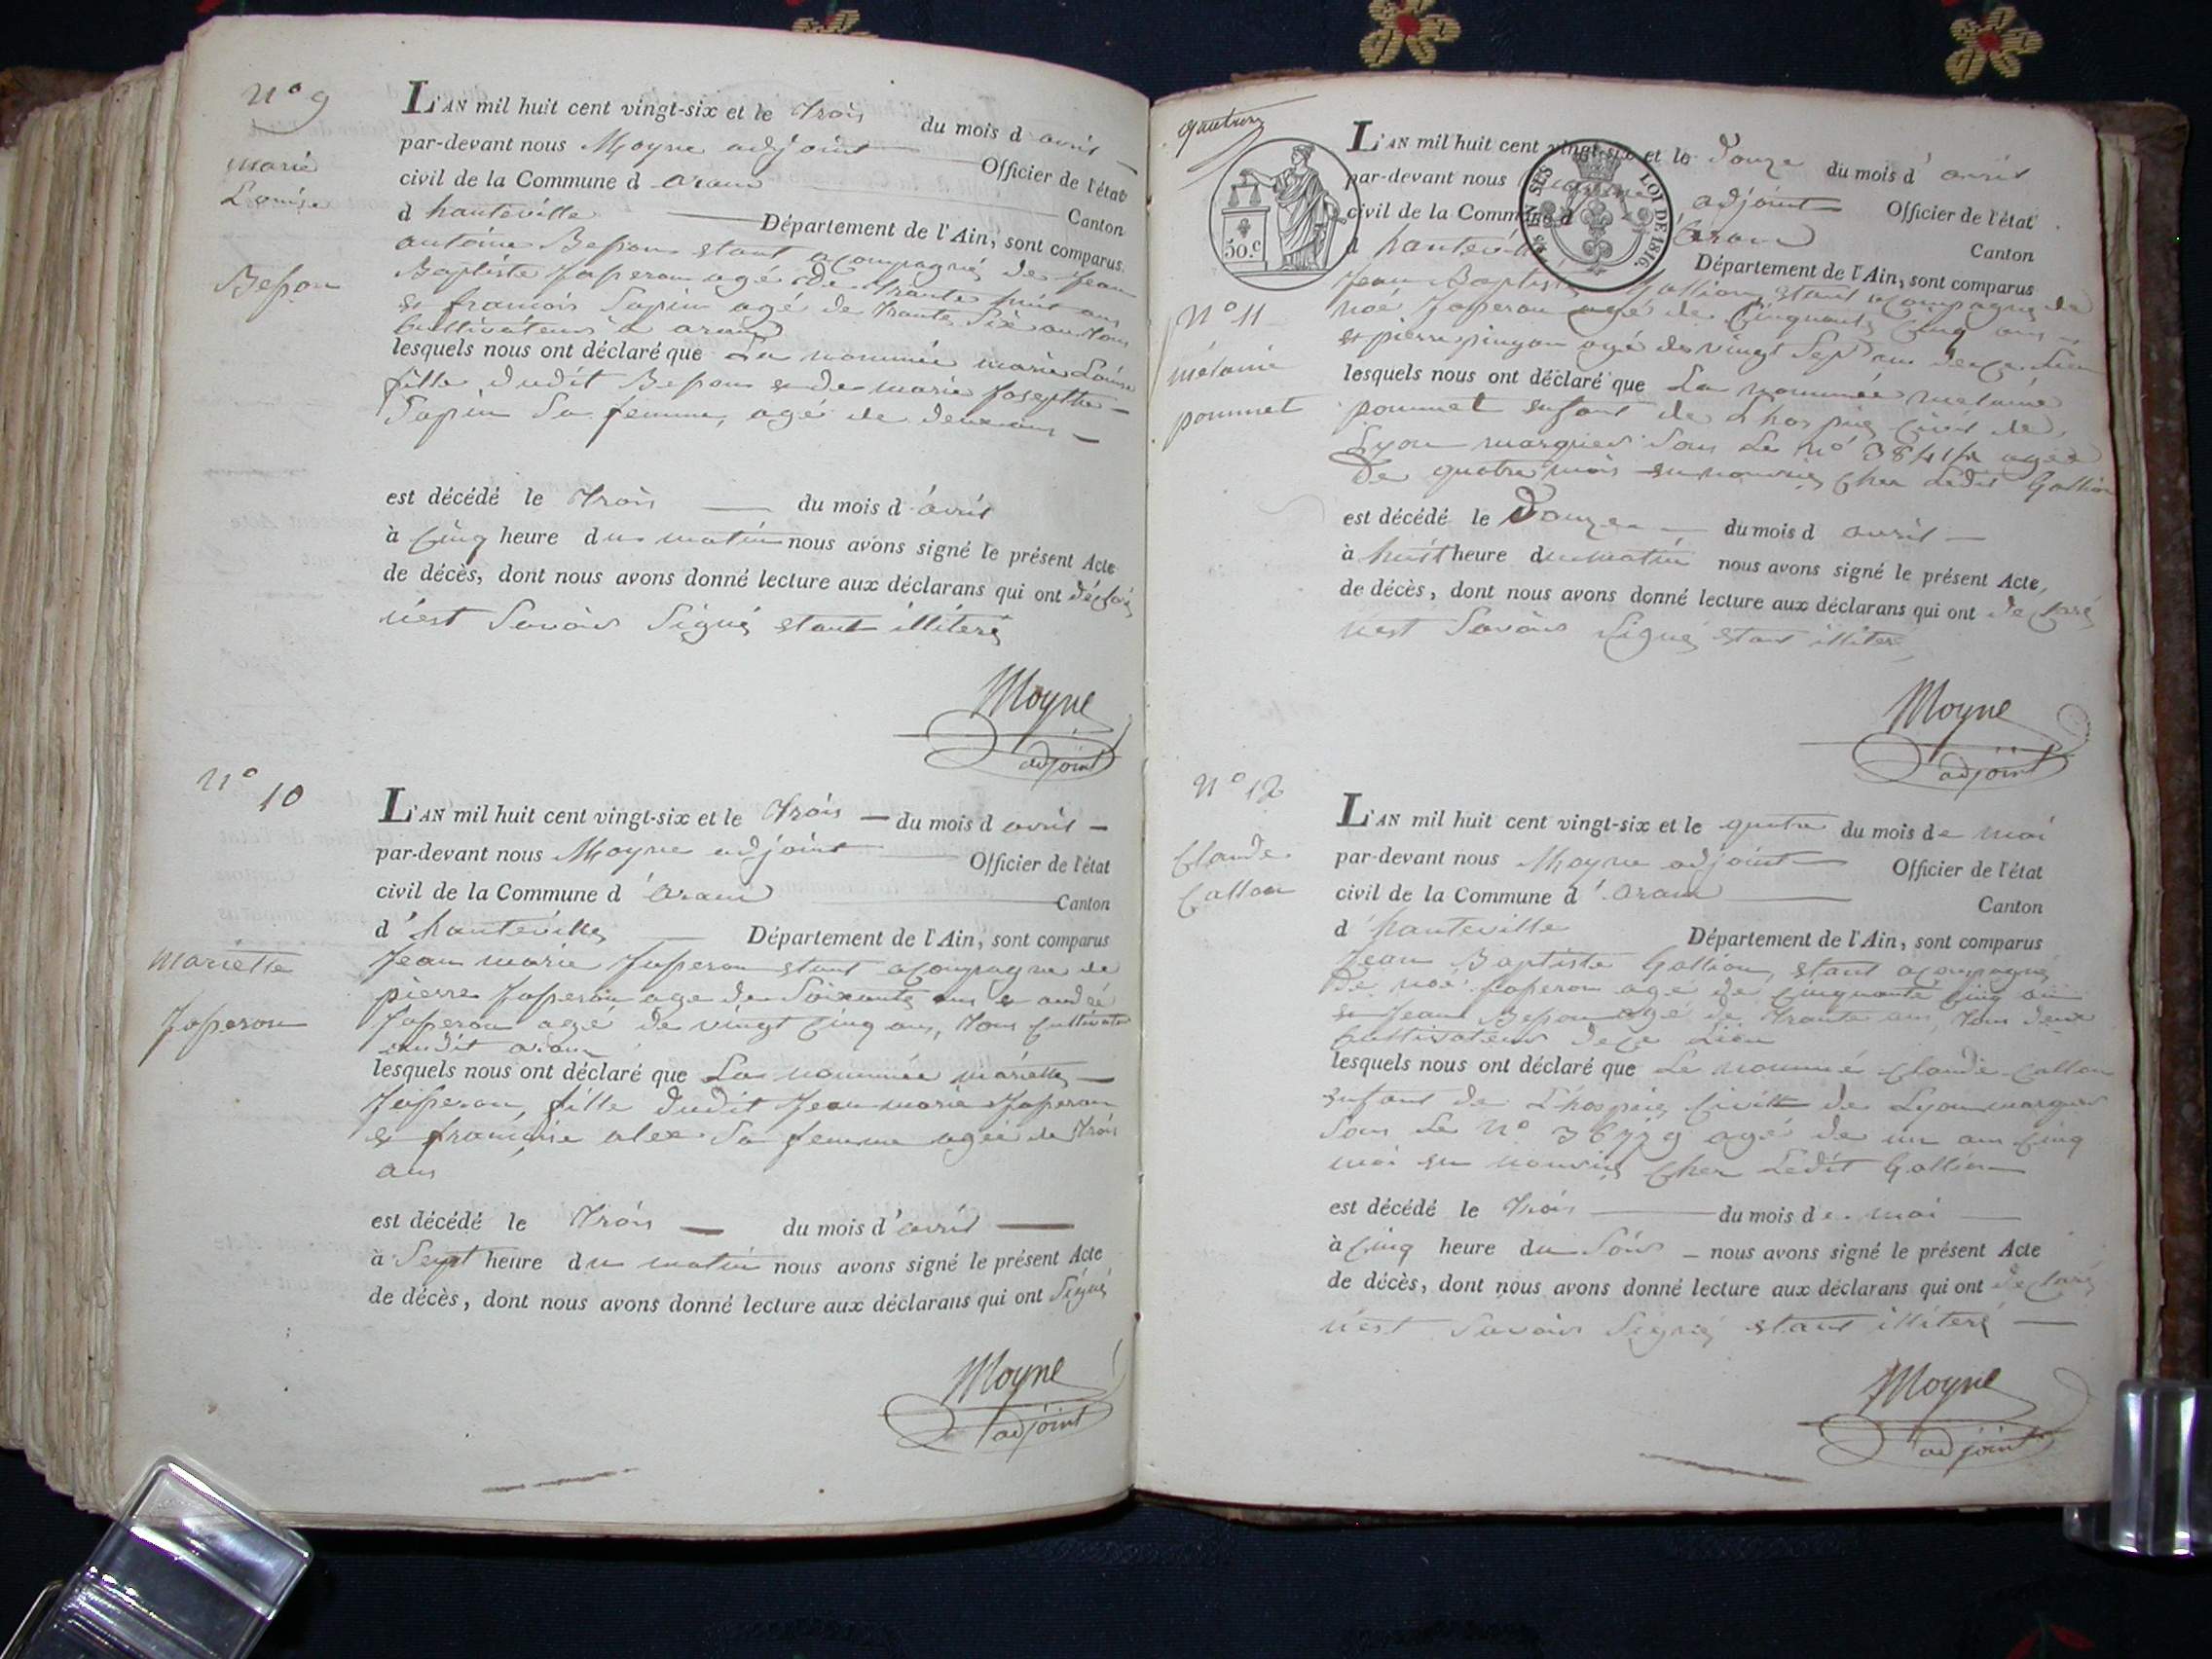 N° 9
marie
Louise
Besson
L'AN mil huit cent vingt-six et le trois du mois d avril
par-devant nous Moyne adjoint Officier de l'état
civil de la Commune d aranc Canton
d hauteville Département de l'Ain, sont comparus
antoine Besson stant acompagné de jean
Baptiste Josseron agé de trante huit ans
et francois Sapin agé de trante six ans tous
Cultivateurs a aranc
lesquels nous ont déclaré que La nommée marie Louise
fille dudit Besson et de marie Josephte
Sapin Sa femme, agé de deux ans
est décédé le trois du mois d avril
à Cinq heure du matin nous avons signé le présent Acte
de décès, dont nous avons donné lecture aux déclarans qui ont déclaré
n'est Savoir Signé stant illiteré
Moyne
adjoint
N° 10
mariette
Josseron
L'AN mil huit cent vingt-six et le trois du mois d avril
par-devant nous Moyne adjoint Officier de l'état
civil de la Commune d' aranc Canton
d' hauteville Département de l'Ain, sont comparus
Jean marie Josseron stant acompagné de
pierre Josseron age de Soixante ans et andré
Josseron agé de vingt Cinq ans, tous Cultivateur
audit aranc
lesquels nous ont déclaré que La nommée mariette
Josseron, fille dudit Jean marie Josseron
et francoise alex Sa femme agée de trois
ans
est décédé le trois du mois d' avril
à Sept heure du matin nous avons signé le présent Acte
de décès, dont nous avons donné lecture aux déclarans qui ont Signé
Moyne
adjoint
50.c
EN SES
LOI DE 1816.
N° 11
mélanie
pommet
L'AN mil huit cent vingt-six et le douze du mois d' avril
par-devant nous adjoint Officier de l'état
civil de la Commune d aranc Canton
d hauteville Département de l'Ain, sont comparus
Jean Baptiste Gallion stant acompagné de
noé Josseron agé de Cinquante Cinq ans
et pierre pingon agé de vingt Sept ans de Ce Lieu
lesquels nous ont déclaré que La nommée melanie
pommet enfant de Lhospies Civil de
Lyon marquée Sous Le N° agée
De quatre mois en nourrie Cher Ledit Gallion
est décédé le Douze du mois d avril
à huit heure du matin nous avons signé le présent Acte,
de décès, dont nous avons donné lecture aux déclarans qui ont declaré
n'est Savoir Signé stant illiteré
Moyne
adjoint
N° 12
Claude
Callon
L'AN mil huit cent vingt-six et le quatre du mois de mai
par-devant nous Moyne adjoint Officier de l'état
civil de la Commune d' aranc Canton
d' hauteville Département de l'Ain, sont comparus
Jean Baptiste Gallion, stant acompagné
De noé Josseron agé de Cinquante Cinq ans
et Jean Besson agé de trante ans, tous deux
Cultivateurs de Ce Lieu
lesquels nous ont déclaré que Le nommé Claude Callon
enfant de L'hospies Civill de Lyon marquer
Sous Le N° 36779 agé de un an Cinq
moi en nourrie Cher Ledit Gallion
est décédé le trois du mois de mai
à Cinq heure du Soir nous avons signé le présent Acte
de décès, dont nous avons donné lecture aux déclarans qui ont declaré
n'est Savoir Signé stant illiteré
Moyne
adjoint